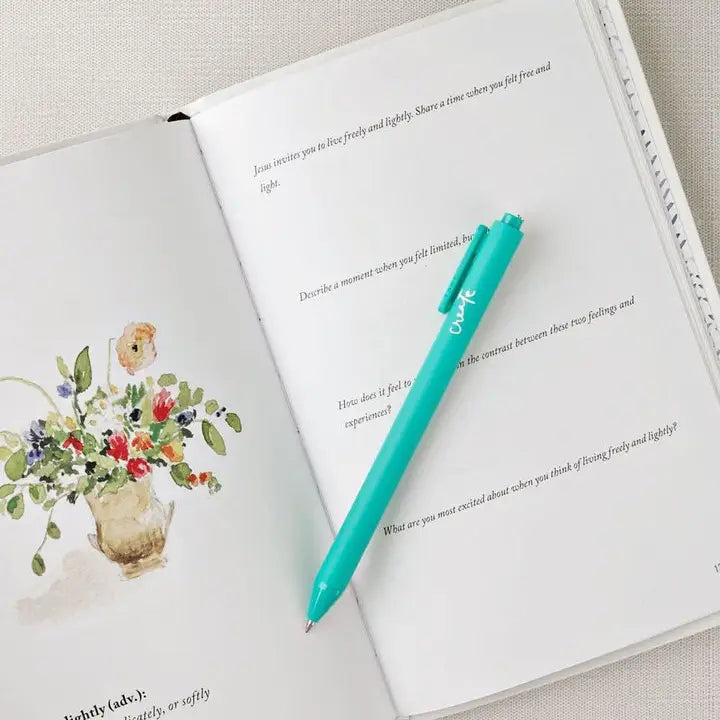 lightly (adv.):
or softly
Jesus invites you to live freely and lightly. Share a time when you felt free and
light.
Describe a moment when you felt limited,
How does it feel to
the contrast between these two feelings and
experiences?
What are you most excited about when you think of living freely and lightly?
create